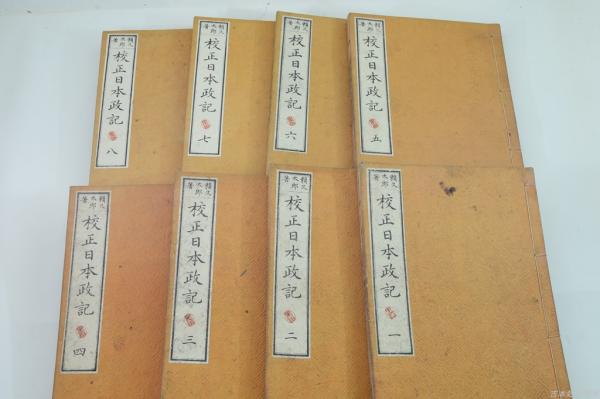 賴久太郎著
校正日本政記 八
賴久太郎著
校正日本政記 七
賴久太郎著
校正日本政記 六
賴久太郎著
校正日本政記 五
賴久太郎著
校正日本政記 四
賴久太郎著
校正日本政記 三
賴久太郎著
校正日本政記 二
賴久太郎著
校正日本政記 一